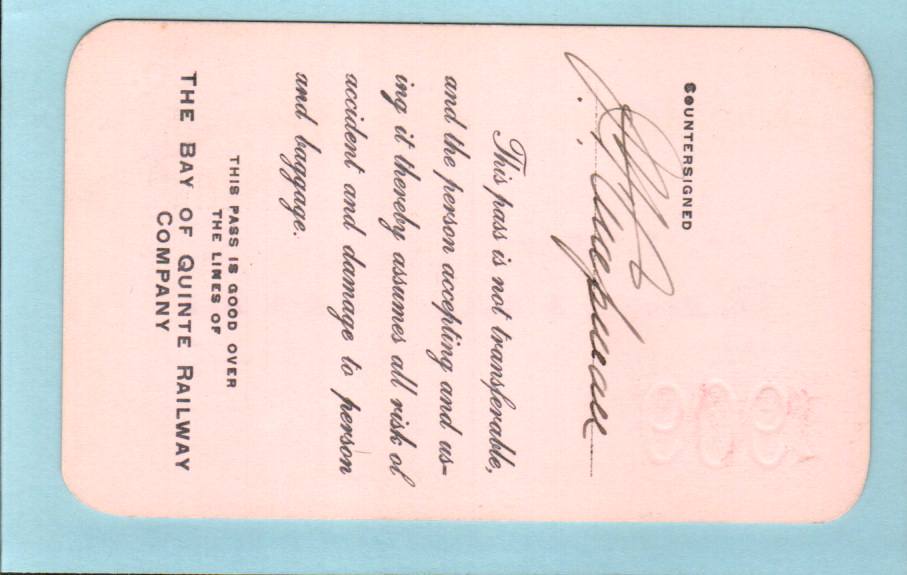 COUNTERSIGNED
This pass is not transferable,
and the person accepting and us-
ing it thereby assumes all risk of
accident and damage to person
and baggage.
THIS PASS IS GOOD OVER
THE LINES OF
THE BAY OF QUINTE RAILWAY
COMPANY